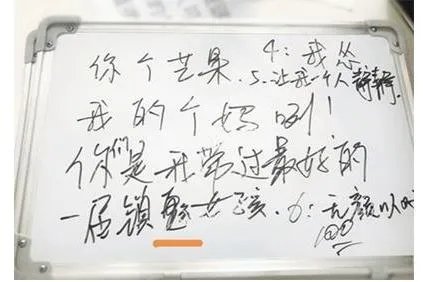 你个芒果. 4: 我怂.
5. 让我一个人静静.
我的个妈咧!
你们是我带过最好的
一届镇魂女孩. 6: 无颜以对
100